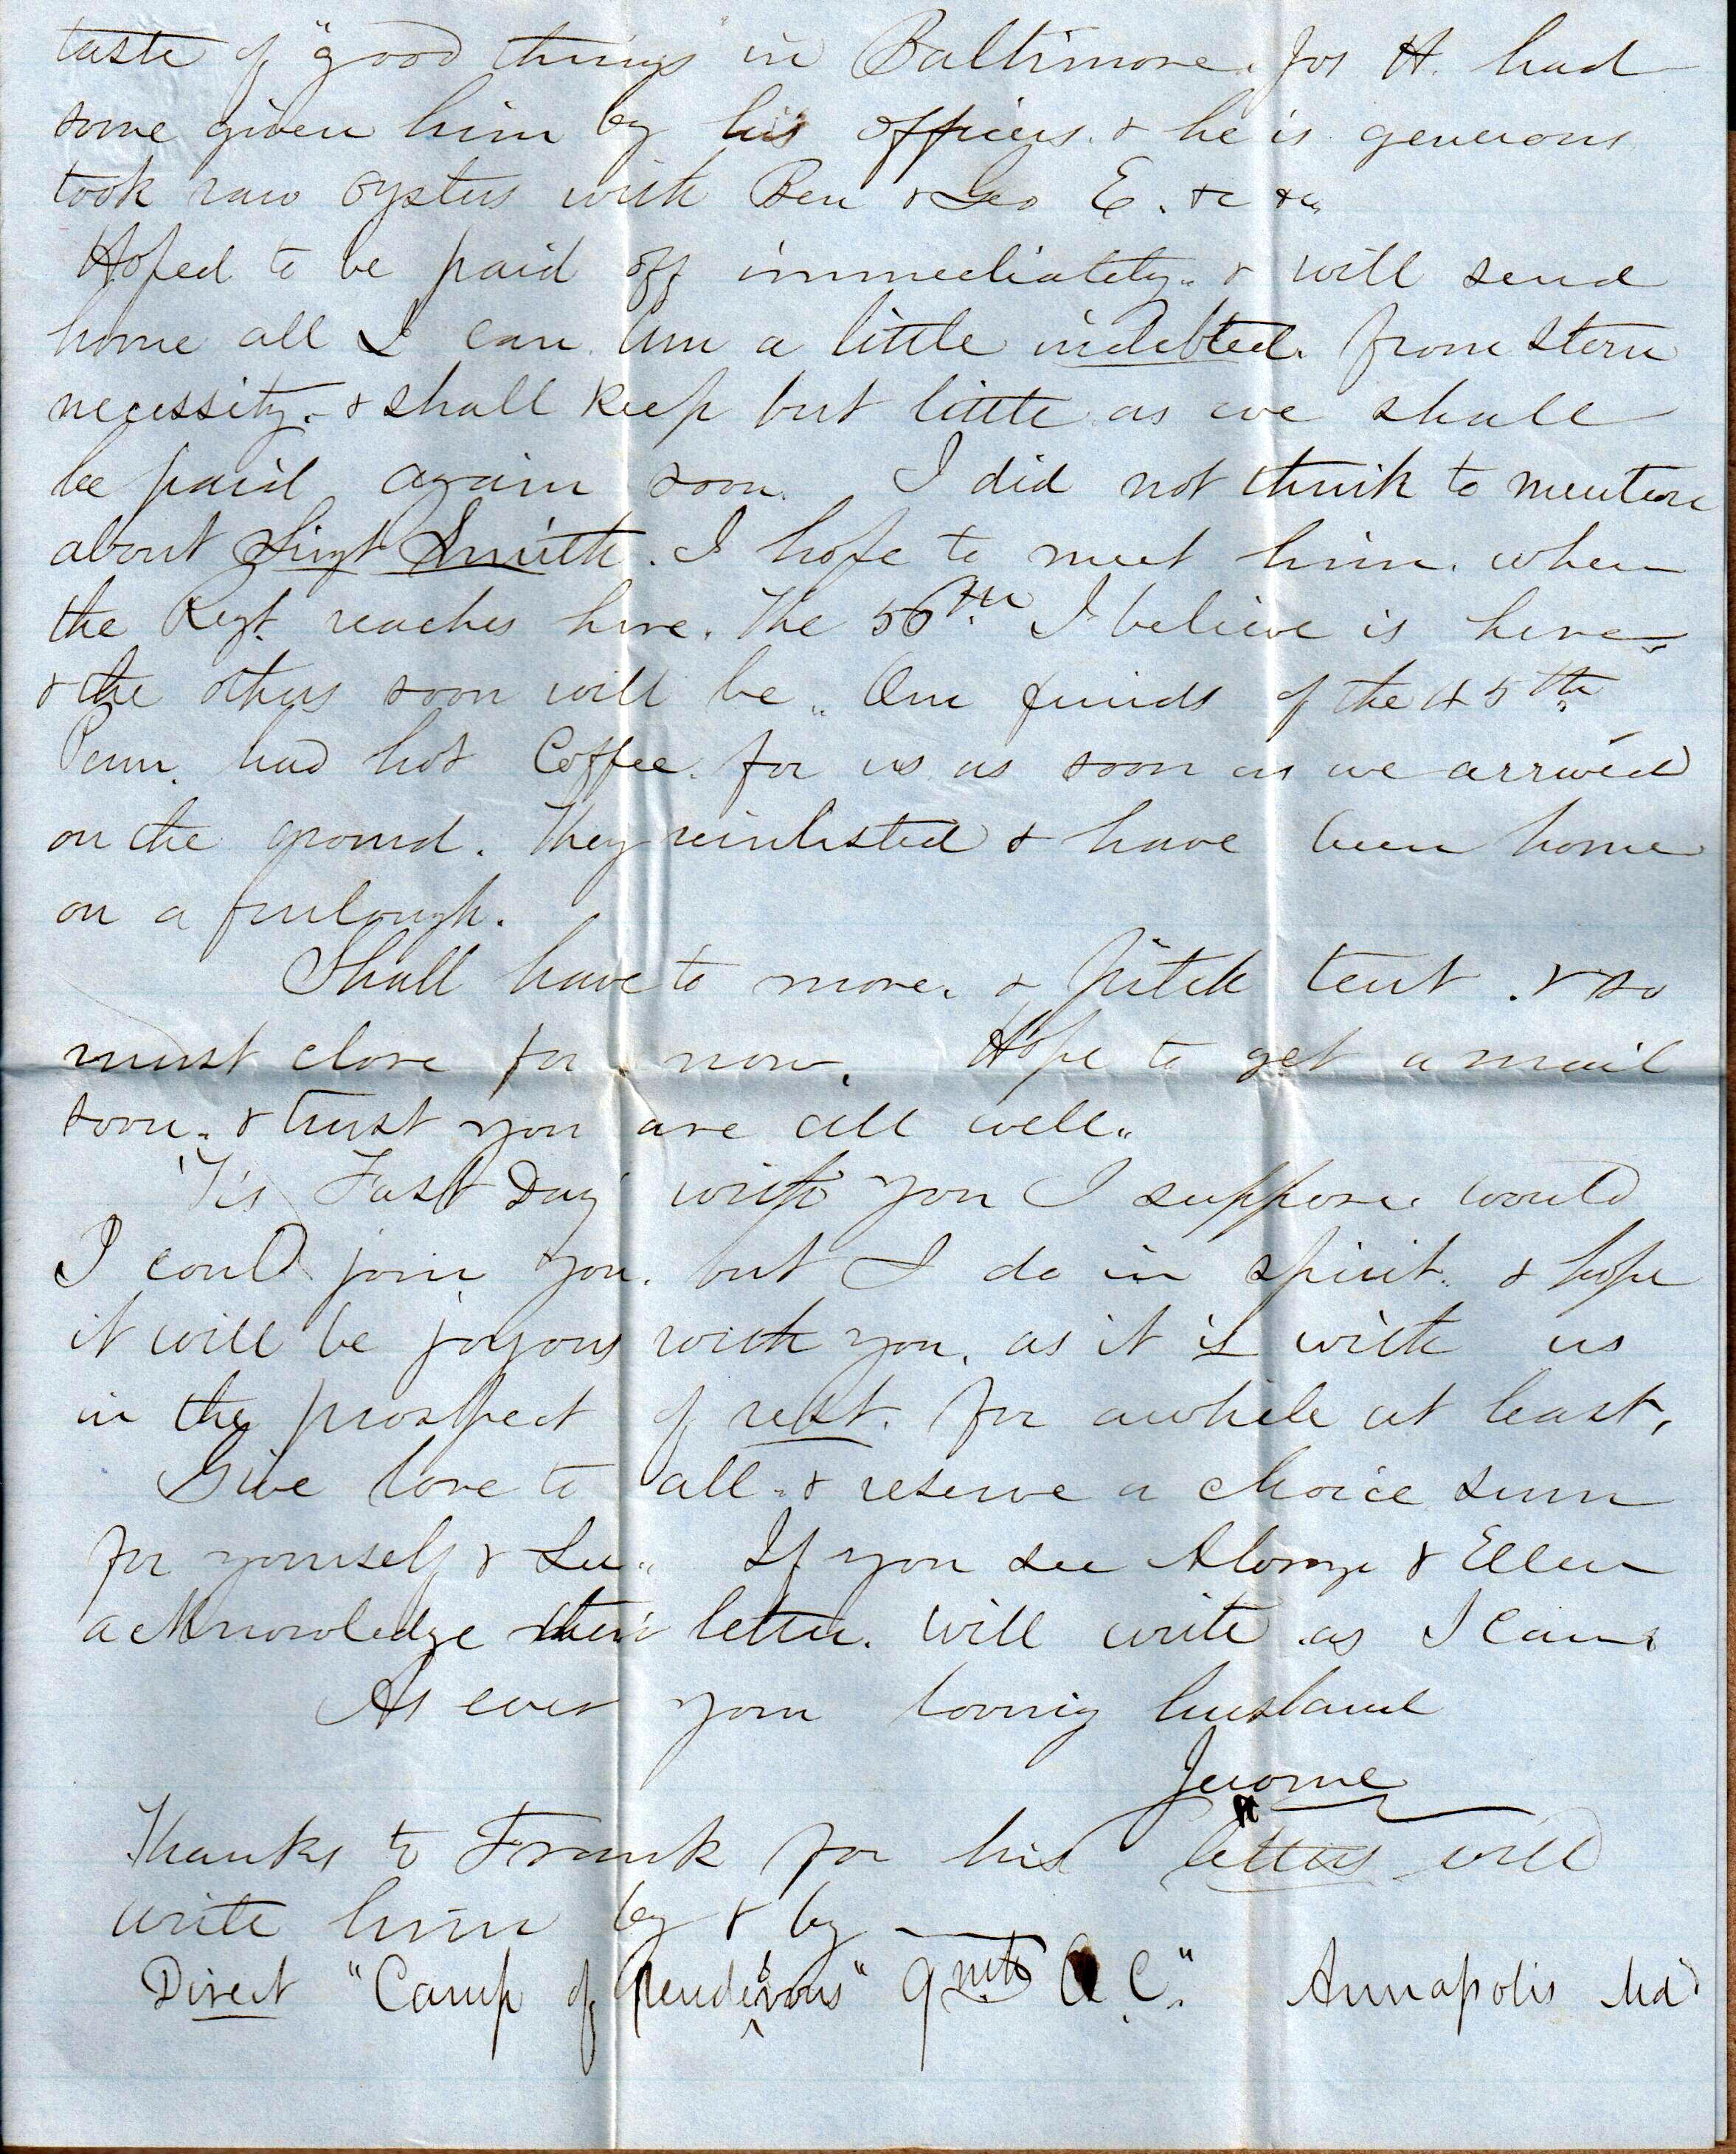 taste of "good things" in Baltimore. Jos H. had
some given him by his officers. & he is generous
took raw oysters with Ben & Geo E. &c &c
Hoped to be paid off immediately. & will send
home all I can. Am a little indebted. from stern
necessity. & shall keep but little as we shall
be paid again soon. I did not think to mention
about Sergt Smith. I hope to meet him. when
the Regt. reaches here. The 56th I believe is here
& the others soon will be. Our friends of the 45th
Penn. had hot Coffee. for us as soon as we arrived
on the ground. They reinlisted & have been home
on a furlough.
Shall have to move. & pitch tent. & so
must close for now. Hope to get a mail
soon. & trust you are all well.
'Tis Fast Day with you I suppose. would
I could join you. but I do in spirit. & hope
it will be joyous with you. as it is with us
in the prospect of rest. for awhile at least.
Give love to all. & reserve a choice sum
for yourself & Lu. If you see Alonzo & Ellen
acknowledge their letter. will write as I can.
As ever your loving husband
Jerome
Thanks to Frank for his letters will
write him by & by
Direct "Camp of Rendesvous" 9th A. C." Annapolis Md